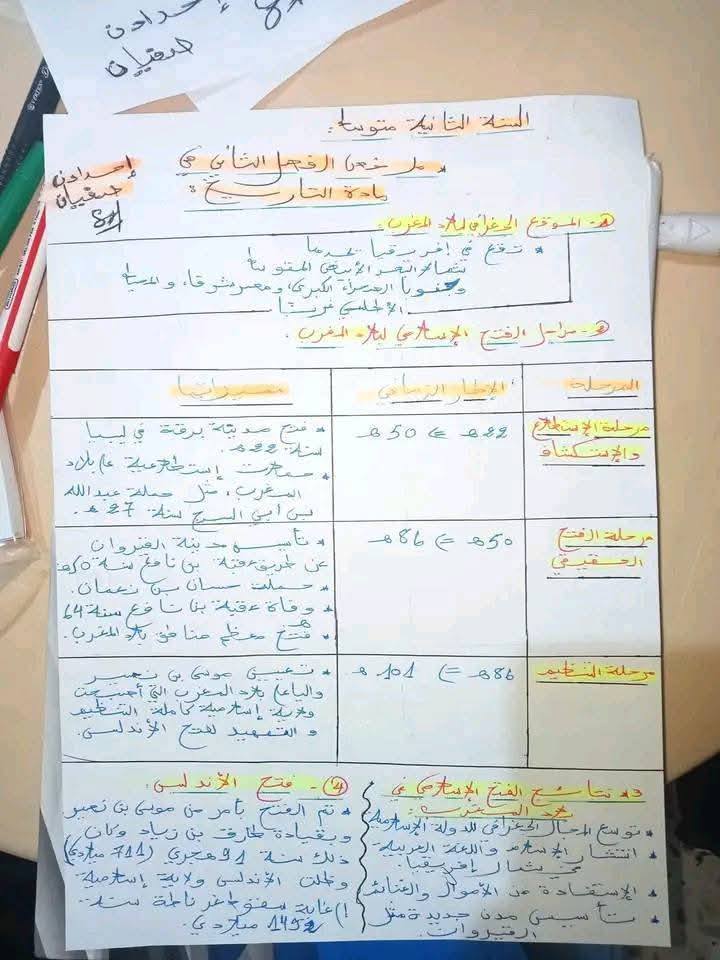 إحدادن
صفيان
السنة الثانية متوسط:
* ملخص الفصل الثاني في
مادة التاريخ:
إحدادن
صفيان
1- الموقع الجغرافي لبلاد المغرب:
* تقع في إفريقيا تحدها
شمالا البحر الأبيض المتوسط
وجنوبا الصحراء الكبرى، ومصر شرقا، والمحيط
الأطلسي غربا
2- مراحل الفتح الإسلامي لبلاد المغرب.
المرحلة
الإطار الزماني
مميزاتها
مرحلة الإستطلاع
والإستكشاف
22هـ => 50هـ
* فتح مدينة برقة في ليبيا
سنة 22هـ.
* حملات إستطلاعية على بلاد
المغرب، مثل حملة عبد الله
بن أبي السرح سنة 27هـ.
مرحلة الفتح
الحقيقي
50هـ => 86هـ
* تأسيس مدينة القيروان
عن طريق عقبة بن نافع سنة 50هـ
* حملة حسان بن نعمان.
* وفاة عقبة بن نافع سنة 64
هـ
* فتح معظم مناطق بلاد المغرب.
مرحلة التنظيم
86هـ => 101هـ
* تعيين موسى بن نصير
واليا على بلاد المغرب التي أصبحت
ولاية إسلامية كاملة التنظيم
و التمهيد لفتح الأندلس.
3* نتائج الفتح الإسلامي في
بلاد المغرب:
* توسع المجال الجغرافي للدولة الإسلامية
* انتشار الإسلام واللغة العربية
في شمال إفريقيا.
* الإستفادة من الأموال والغنائم
* تأسيس مدن جديدة مثل
القيروان.
4- فتح الأندلس:
* تم الفتح بأمر من موسى بن نصير
وبقيادة طارق بن زياد وكان
ذلك سنة 91 هجري (711 ميلادي)
وظلت الأندلس ولاية إسلامية
إلى غاية سقوط غرناطة سنة
1492 ميلادي.